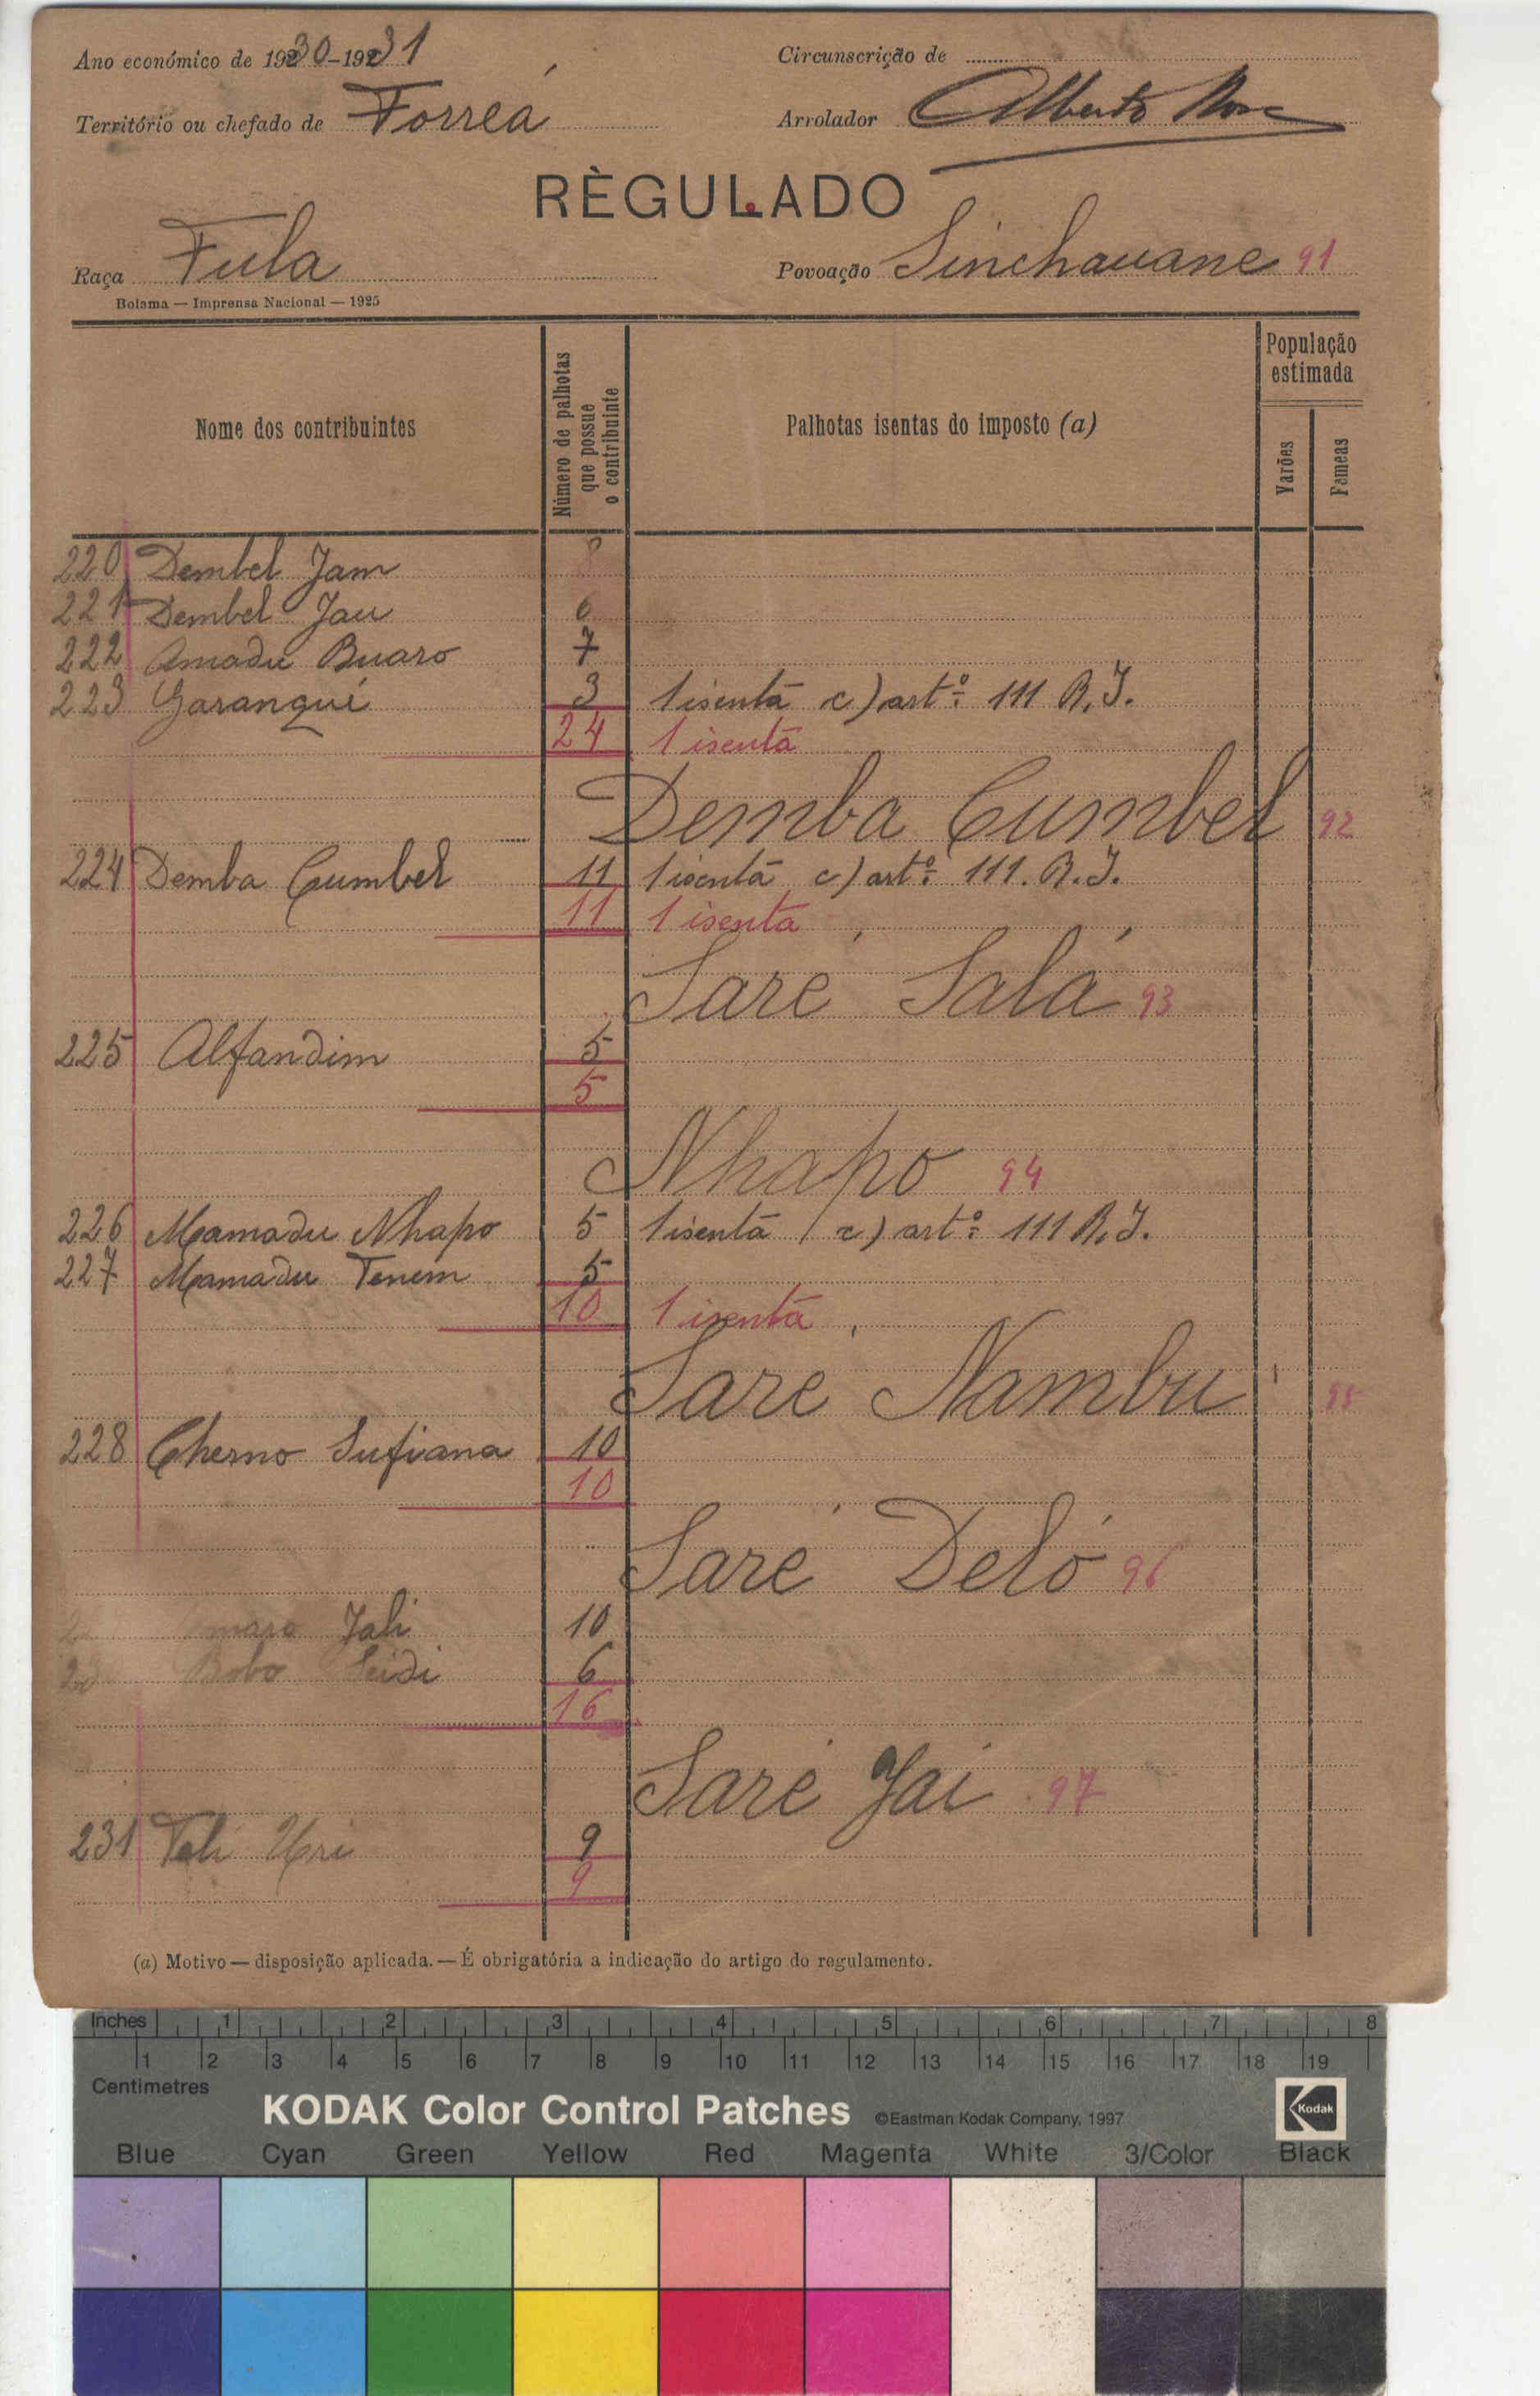 Ano económico de 1930-1931
Circunscrição de
Território ou chefado de Forreá
Arrolador Alberto
RÈGULADO
Raça Fula
Povoação Sinchauane 91
Bolama — Imprensa Nacional — 1925
Nome dos contribuintes
Número de palhotas que possue o contribuinte
Palhotas isentas do imposto (a)
População estimada
Varões
Fameas
220 Dembel Jam 8
221 Dembel Jau 6
222 Amadu Buaro 7
223 Garanguí 3 1 isenta c) artº 111 R.I.
24 1 isenta
Demba Cumbel 92
224 Demba Cumbel 11 1 isenta c) artº 111. R.I.
11 1 isenta
Saré Salá 93
225 Alfandim 5
5
Nhapo 94
226 Mamadu Nhapo 5 1 isenta c) artº 111 R.I.
227 Mamadu Tenem 5
10 1 isenta
Saré Nambu 95
228 Cherno Sufiana 10
10
Saré Deló 96
Jali 10
Bobo Seidi 6
16
Saré Jai 97
231 Teli Uri 9
9
(a) Motivo — disposição aplicada. — É obrigatória a indicação do artigo do regulamento.
Inches 1 2 3 4 5 6 7 8
1 2 3 4 5 6 7 8 9 10 11 12 13 14 15 16 17 18 19
Centimetres
KODAK Color Control Patches ©Eastman Kodak Company, 1997 Kodak
Blue Cyan Green Yellow Red Magenta White 3/Color Black